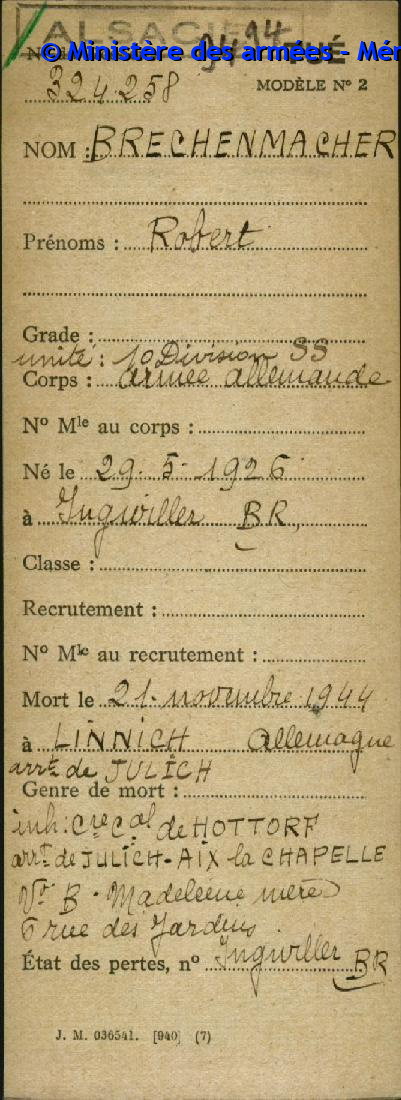 ALSACE
© Ministère des armées - Mé
9494
324258
MODÈLE N° 2
NOM : BRECHENMACHER
Prénoms : Robert
Grade :
unité : 10 Division SS
Corps : armée allemande
N° Mle au corps :
Né le 29. 5. 1926
à Ingwiller BR,
Classe :
Recrutement :
N° Mle au recrutement :
Mort le 21. novembre 1944
à LINNICH Allemagne
arrt de JULICH
Genre de mort :
inh: Cre Cal de HOTTORF
arrt de JULICH-AIX la CHAPELLE
Vr B. Madeleine mère
6 rue des Jardins
État des pertes, n° Ingwiller BR
J. M. 036541. [940] (7)